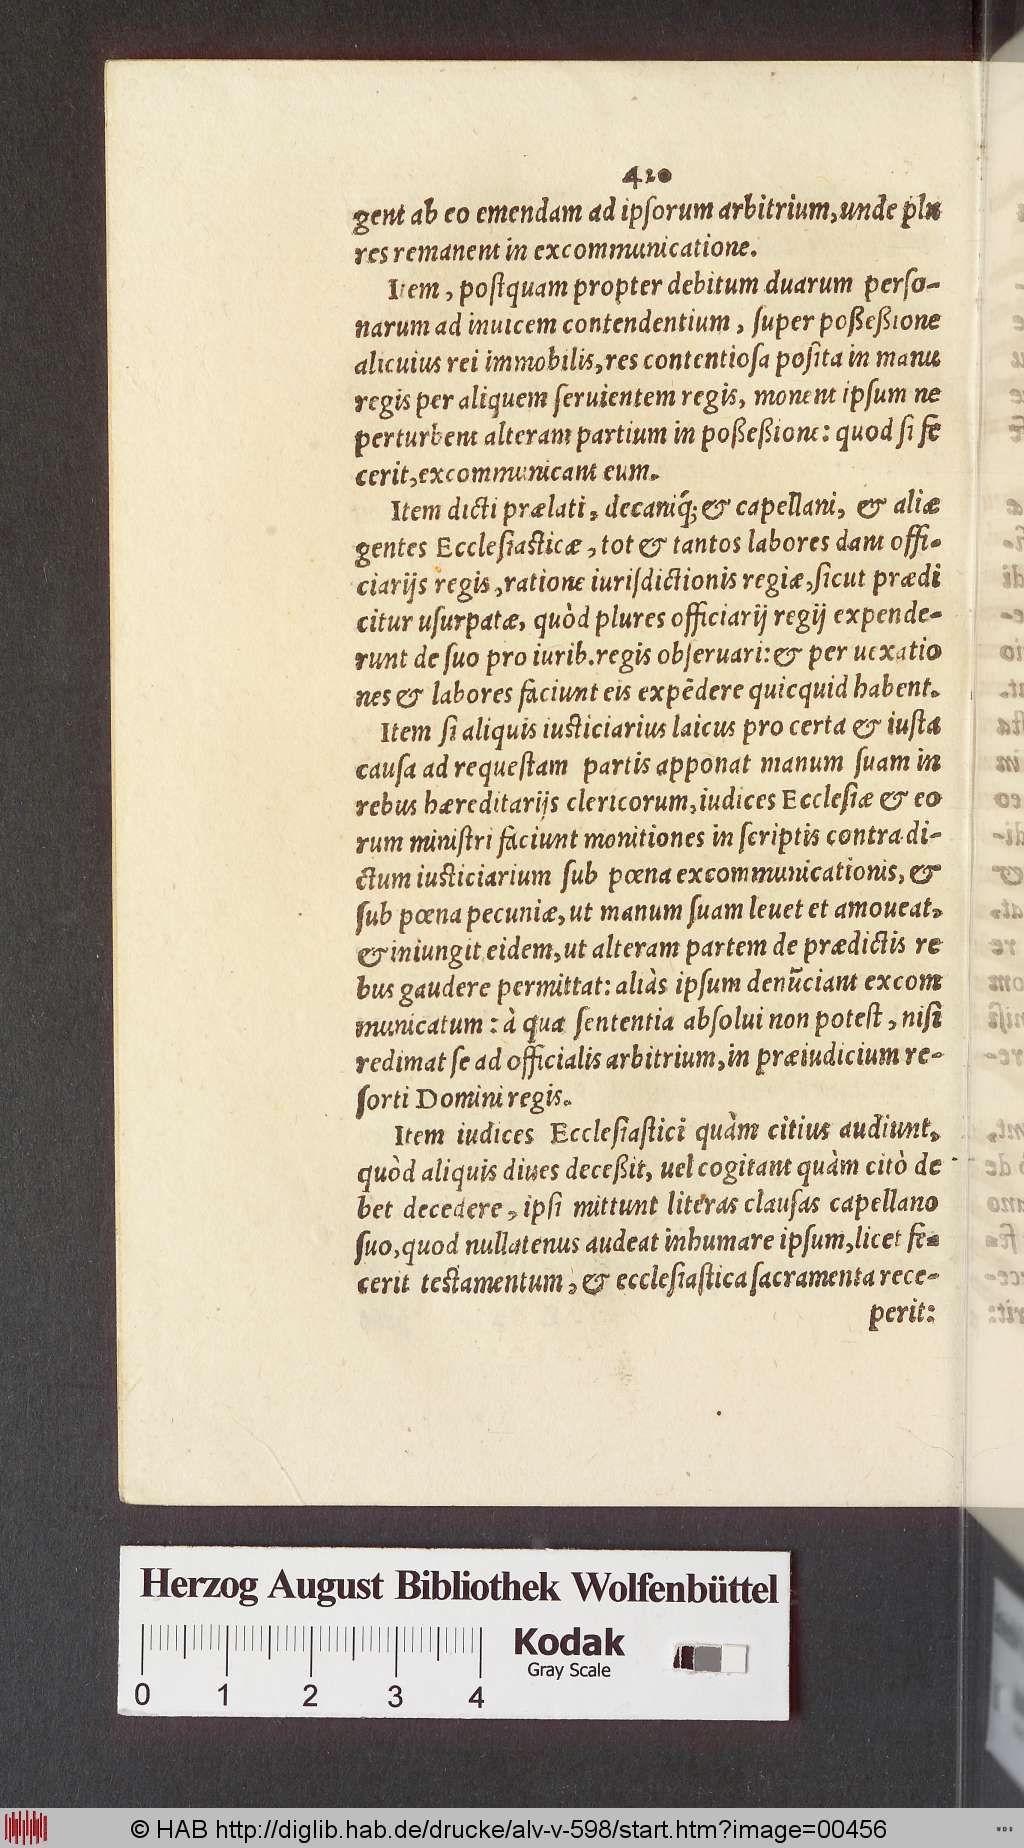 420
gent ab eo emendam ad ipſorum arbitrium, unde plu
res remanent in excommunicatione.
Item, poſtquam propter debitum duarum perſo-
narum ad inuicem contendentium, ſuper poßeßione
alicuius rei immobilis, res contentioſa poſita in manu
regis per aliquem ſeruientem regis, monent ipſum ne
perturbent alteram partium in poßeßione: quod ſi fe
cerit, excommunicant eum.
Item dicti prælati, decaniq́; & capellani, & aliæ
gentes Eccleſiaſticæ, tot & tantos labores dant offi-
ciarijs regis, ratione iuriſdictionis regiæ, ſicut prædi
citur uſurpatæ, quòd plures officiarij regij expende-
runt de ſuo pro iurib. regis obſeruari: & per uexatio
nes & labores faciunt eis expẽdere quicquid habent.
Item ſi aliquis iuſticiarius laicus pro certa & iuſta
cauſa ad requeſtam partis apponat manum ſuam in
rebus hæreditarijs clericorum, iudices Eccleſiæ & eo
rum miniſtri faciunt monitiones in ſcriptis contra di-
ctum iuſticiarium ſub pœna excommunicationis, &
ſub pœna pecuniæ, ut manum ſuam leuet et amoueat,
& iniungit eidem, ut alteram partem de prædictis re
bus gaudere permittat: aliàs ipſum denũciant excom
municatum: à qua ſententia abſolui non poteſt, niſi
redimat ſe ad officialis arbitrium, in præiudicium re-
ſorti Domini regis.
Item iudices Eccleſiaſtici quàm citius audiunt,
quòd aliquis diues deceßit, uel cogitant quàm citò de
bet decedere, ipſi mittunt literas clauſas capellano
ſuo, quod nullatenus audeat inhumare ipſum, licet fe-
cerit teſtamentum, & eccleſiaſtica ſacramenta rece-
perit:
Herzog August Bibliothek Wolfenbüttel
Kodak
Gray Scale
0 1 2 3 4
© HAB http://diglib.hab.de/drucke/alv-v-598/start.htm?image=00456